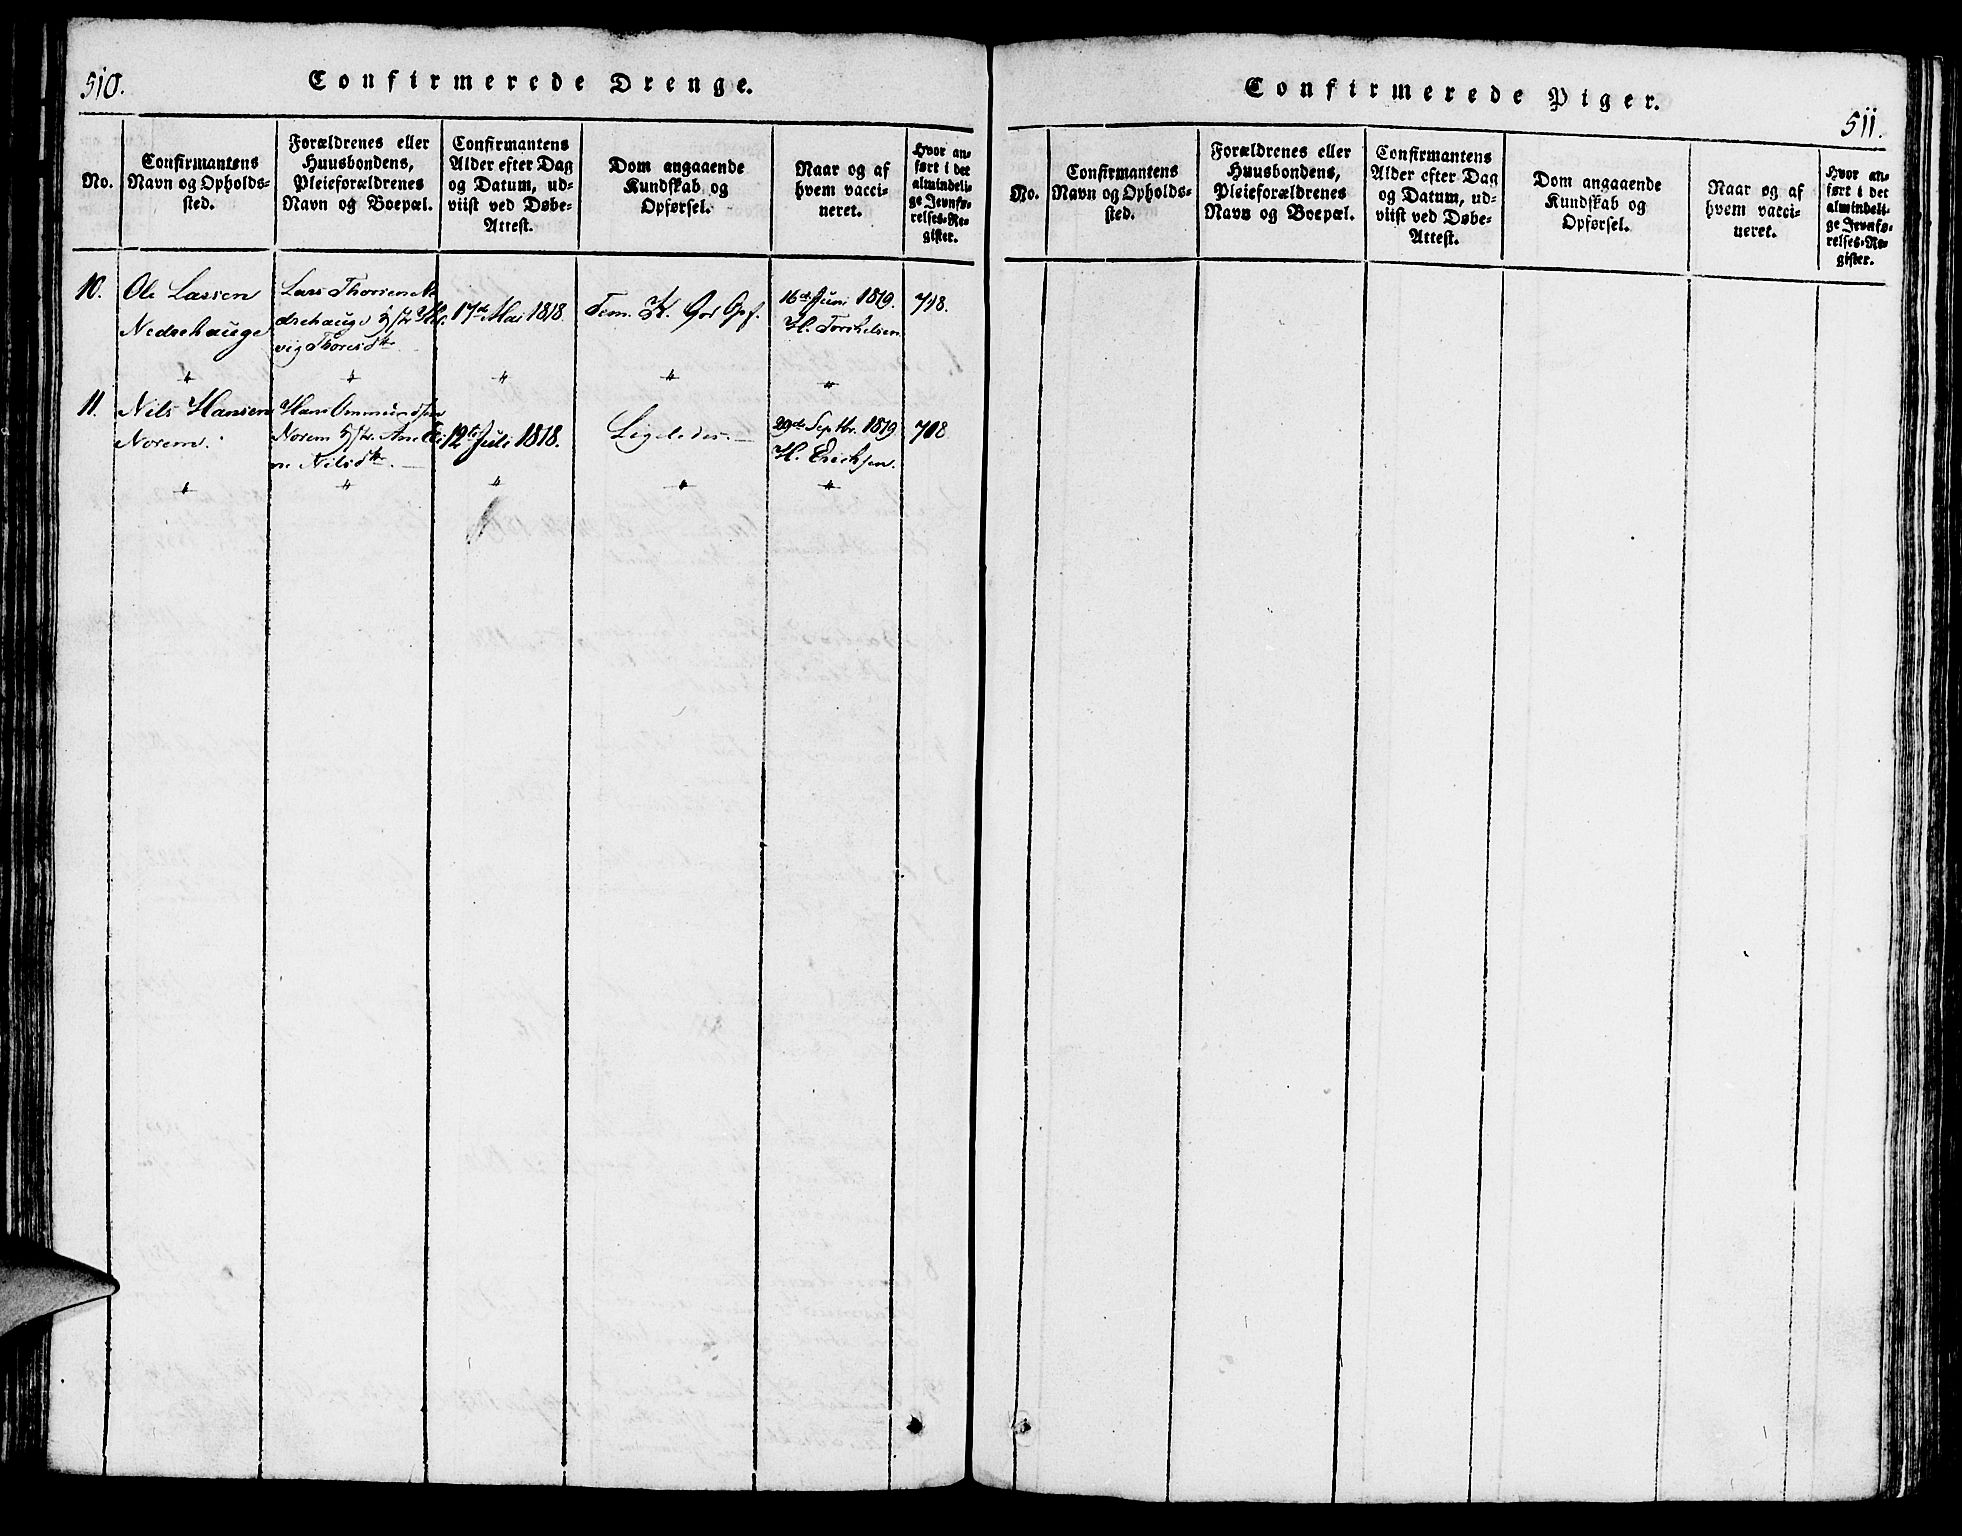 510.
Confirmerede Drenge.
No.
Confirmantens
Navn og Opholds-
sted.
Forældrenes eller
Huusbondens,
Pleieforældrenes
Navn og Boepæl.
Confirmantens
Alder efter Dag
og Datum, ud-
viist ved Døbe-
Attest.
Dom angaaende
Kundskab og
Opførsel.
Naar og af
hvem vacci-
neret.
Hvor an-
ført i det
almindeli-
ge Jevnfø-
relses-Re-
gister.
10.
Ole Larsen
Nedrehauge
Lars Thorsen Ne
drehauge
vig Thoresdtr
17de Mai 1818.
Tem. K. God Opf.
16de Juni 1819.
H. Torkelsen
718.
11.
Nils Hansen
Norem.
Hans Ommundsen
Norem
Nilsdtr.
12te Juli 1818.
Ligeledes.
29de Septbr. 1819
H. Erichsen.
718
Confirmerede Piger.
511.
No.
Confirmantens
Navn og Opholds-
sted.
Forældrenes eller
Huusbondens,
Pleieforældrenes
Navn og Boepæl.
Confirmantens
Alder efter Dag
og Datum, ud-
viist ved Døbe-
Attest.
Dom angaaende
Kundskab og
Opførsel.
Naar og af
hvem vacci-
neret.
Hvor an-
ført i det
almindeli-
ge Jevnfø-
relses-Re-
gister.